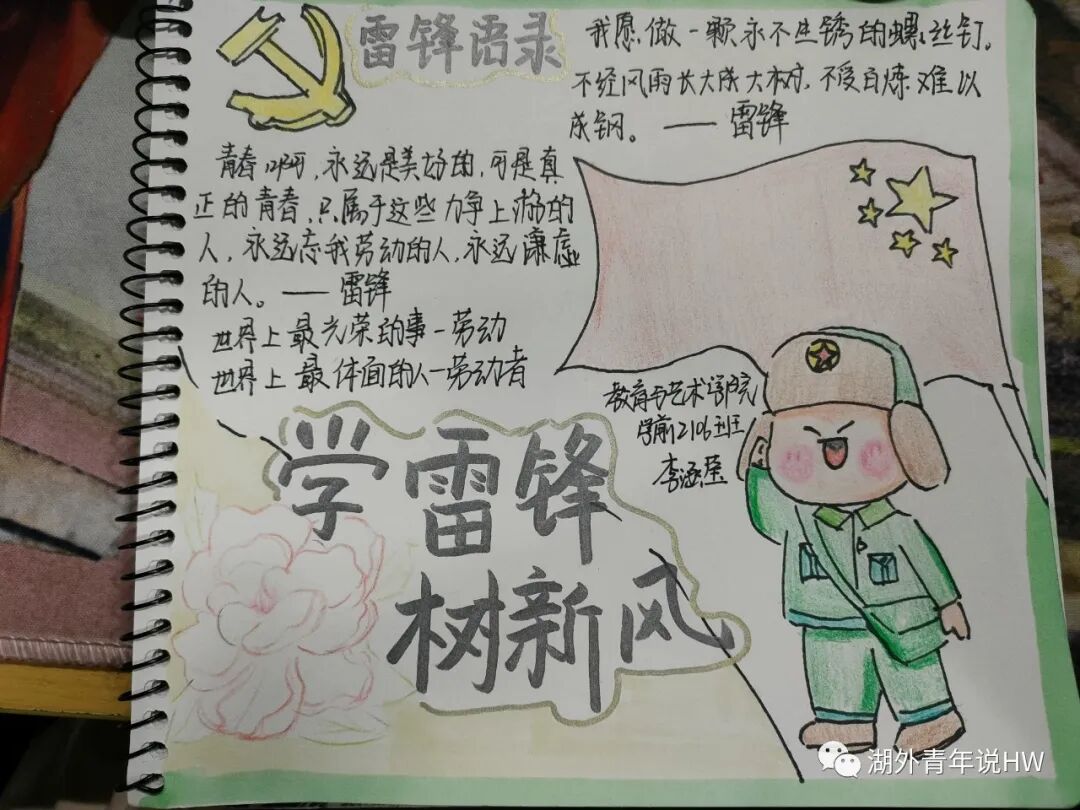 雷锋语录
我愿做一颗永不生锈的螺丝钉。
不经风雨长大成大树，不受百炼难以
成钢。——雷锋
青春啊，永远是美好的，可是真
正的青春，只属于这些力争上游的
人，永远忘我劳动的人，永远谦虚
的人。——雷锋
世界上最光荣的事—劳动
世界上最体面的人—劳动者
教育与艺术学院
学前2106班
李涵
学雷锋
树新风
湖外青年说HW